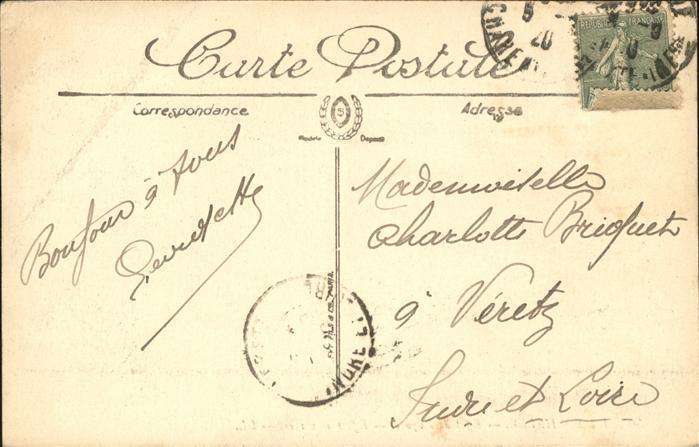 Carte Postale
Correspondance
Adresse
Modèle Déposé
RÉPUBLIQUE FRANÇAISE
Bonjour à tous
Mademoiselle
Charlotte Briquet
à Véretz
Indre et Loire
INDRE ET